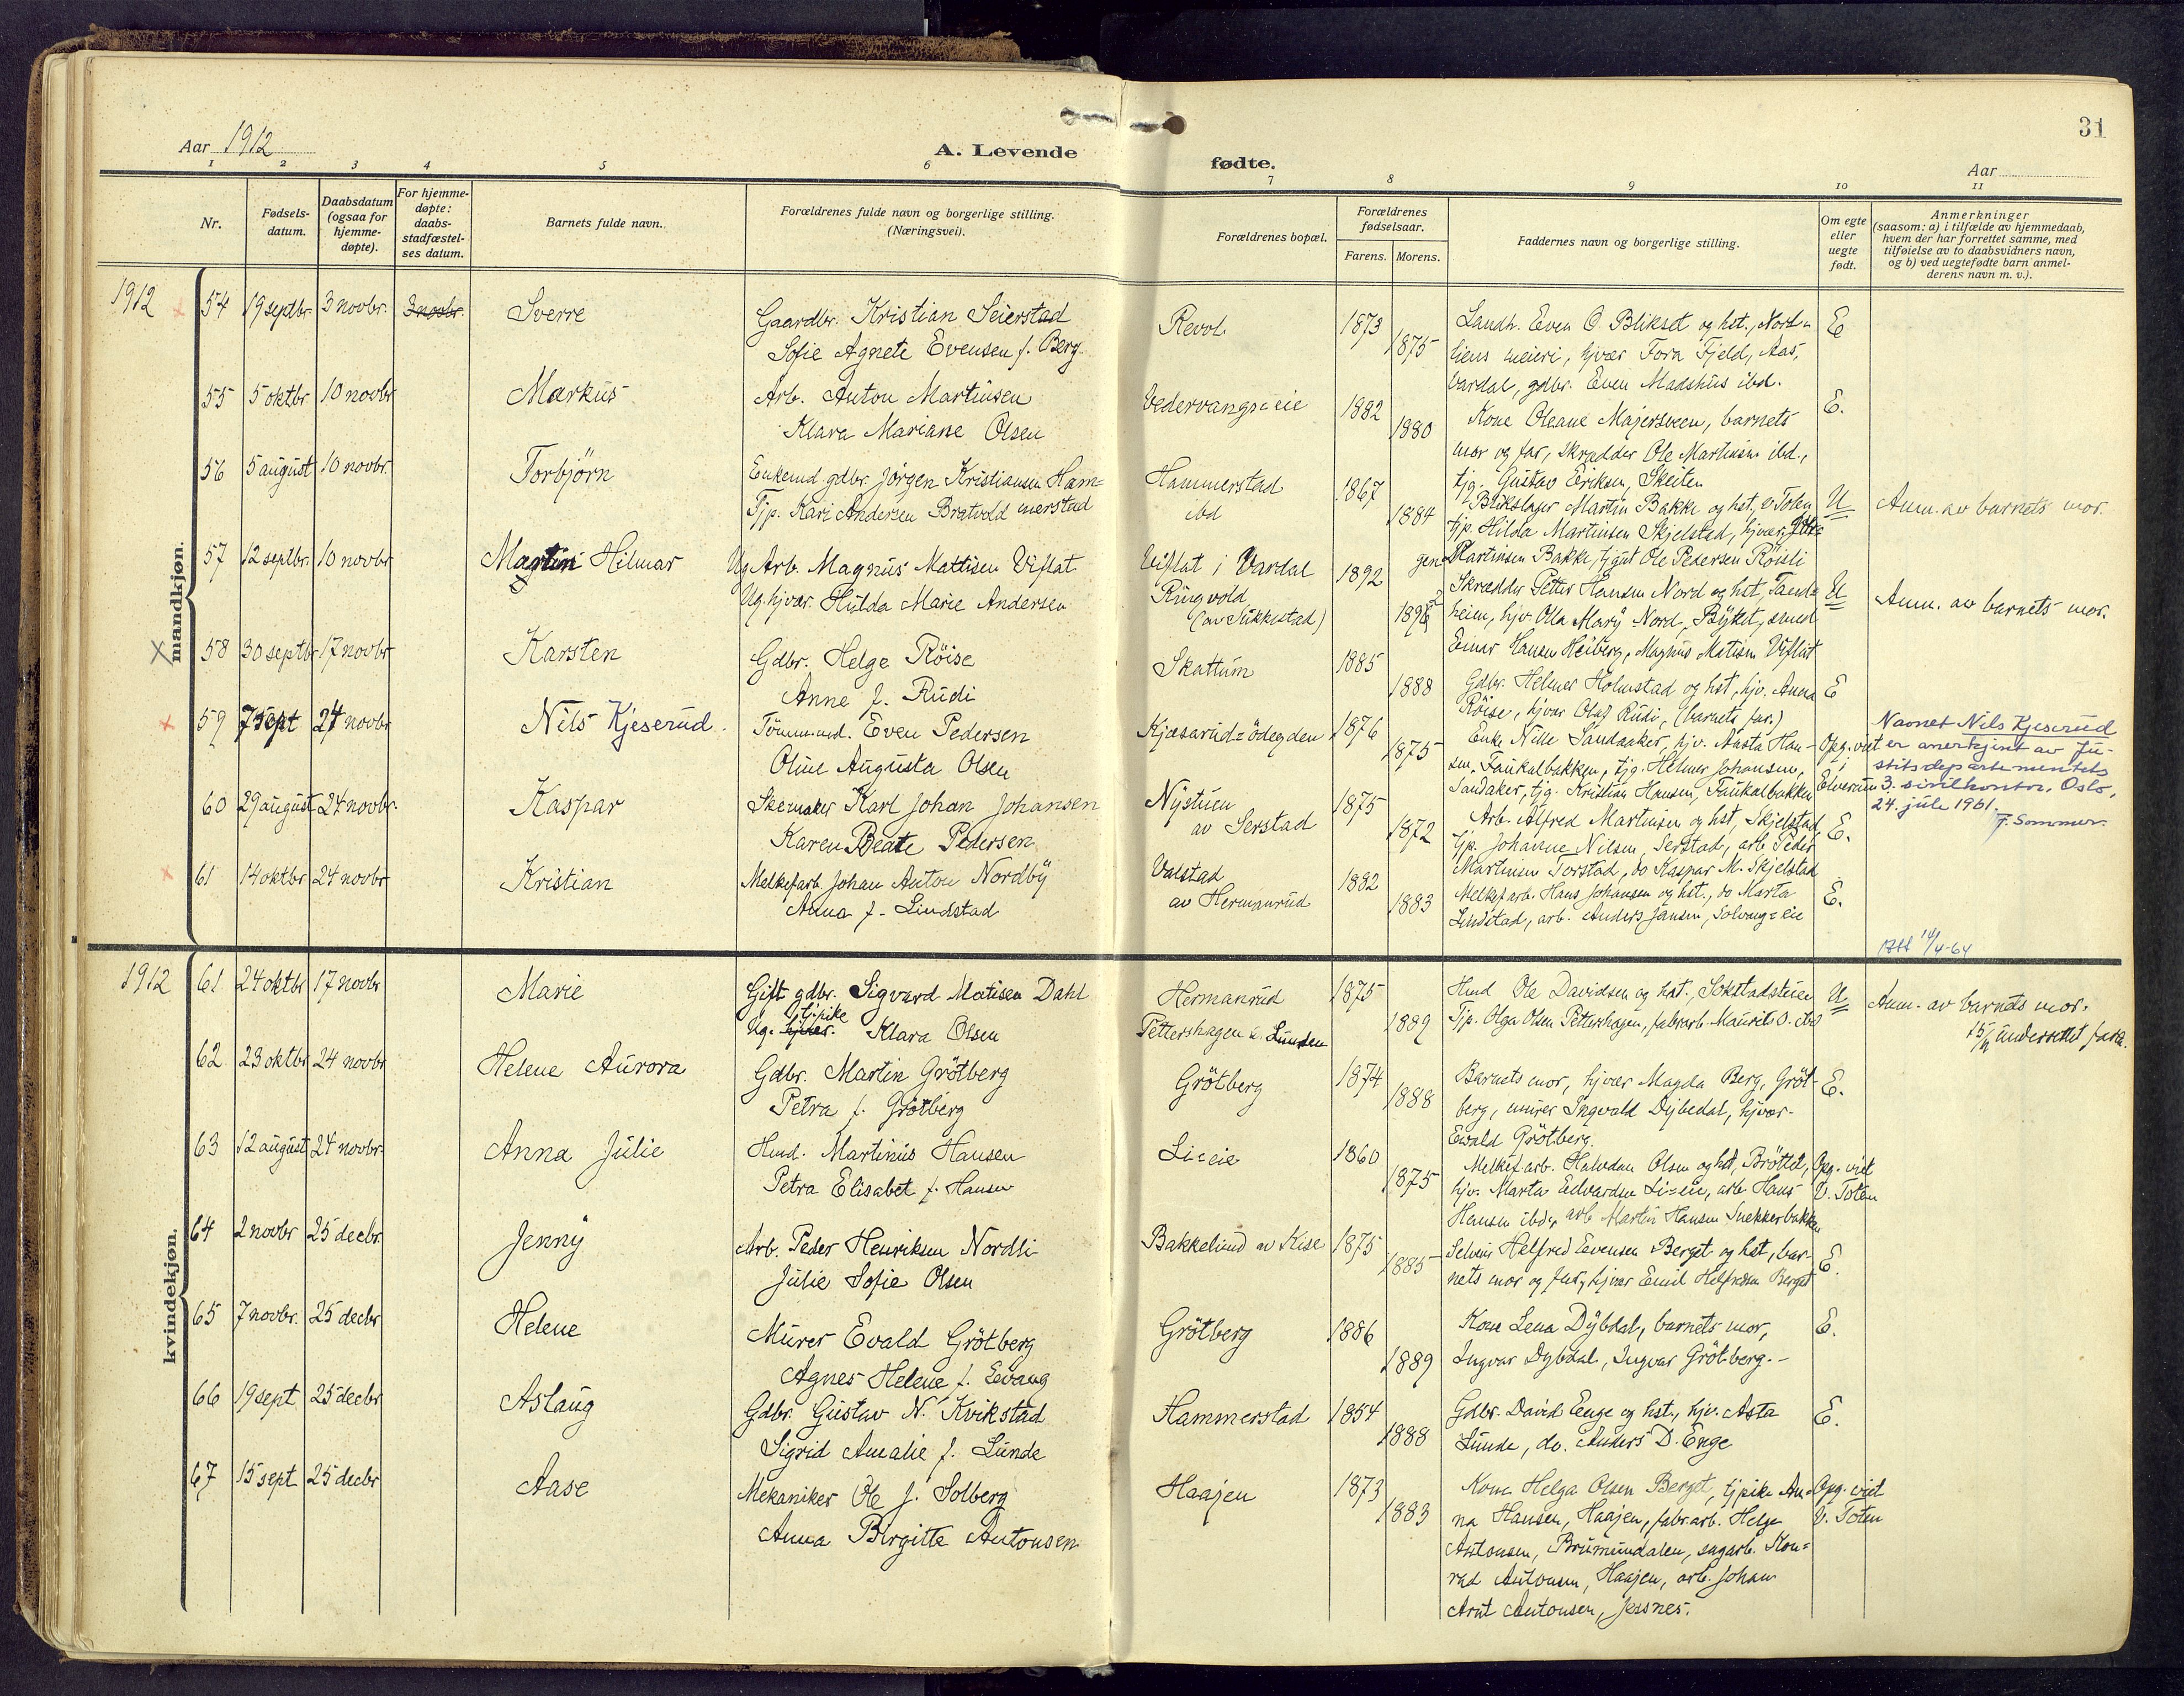 31
Aar 1912
A. Levende fødte.
Aar
1 2 3 4 5 6 7 8 9 10 11
Nr.
Fødsels-
datum.
Daabsdatum
(ogsaa for
hjemme-
døpte).
For hjemme-
døpte:
daabs-
stadfæstel-
ses datum.
Barnets fulde navn.
Forældrenes fulde navn og borgerlige stilling.
(Næringsvei).
Forældrenes bopæl.
Forældrenes
fødselsaar.
Farens. Morens.
Faddernes navn og borgerlige stilling.
Om egte
eller
uegte
født.
Anmerkninger
(saasom: a) i tilfælde av hjemmedaab,
hvem der har forrettet samme, med
tilføielse av to daabsvidners navn,
og b) ved uegtefødte barn anmel-
derens navn m. v.).
mandkjøn.
1912
54 19 septbr. 3 novbr. 3 novbr. Sverre
Gaardbr. Kristian Seierstad
Sofie Agnete Evensen f. Berg.
Revol. 1873
1875
Landh. Even O. Blikset og hst., Nord-
liens meieri, hjvær Tora Fjeld, Aas,
Vardal, gdbr. Even Madshus ibd.
E
55 5 oktbr 10 novbr Markus
Arb. Anton Martinsen
Klara Mariane Olsen
Vedervangseie 1882
1880
Kone Oleane Majersveen, barnets
mor og far, skrædder Ole Martinsen ibd.,
tjg. Gustav Eriksen, Skeiten
E.
56 5 august 10 novbr. Torbjörn
Enkemd. gdbr. Jörgen Kristiansen Ham=
Tjp. Kari Andersen Bratvold merstad
Hammerstad
ibd
1867
1884
Blikslager Martin Bakke og hst, V. Toten
tjp. Hilda Martinsen Skjelstad, hjvær
Martinsen Bakke, tjgut Ole Pedersen Röisli
U
Anm. av barnets mor.
57 12 septbr. 10 novbr Martin Hilmar
Ug. Arb. Magnus Mattisen Viflat
Ug. hjvær. Hulda Marie Andersen
Viflat i Vardal
Ringvold
(av Sukkestad)
1892
Skrædder Petter Hansen Nord og hst, Sand=
heim, hjv. Olla Mary Nord, Byket, smed
Einar Hansen Heiberg, Magnus Matisen Viflat
U
Anm. av barnets mor.
58 30 septbr 17 novbr Karsten
Gdbr. Helge Röise
Anne f. Rudi
Skattum 1885
1888
Gdbr. Helmer Holmstad og hst, hjv. Anna
Röise, hjvær Olaf Rudi, (barnets far.)
E
59 7 sept 24 novbr Nils Kjeserud.
Tömmermd. Even Pedersen
Oline Augusta Olsen
Kjæsarud=ödegden 1876
1875
Enke Nille Sandaaker, hjv. Aasta Han-
sen, Faukalbakken, tjg. Helmer Johansen,
Sandaker, tjg. Kristian Hansen, Faukalbakken
Opg. viet
i
Elverum
Navnet Nils Kjeserud
er anerkjent av Ju-
stitsdepartementets
3. sivilkontor, Oslo,
24. juli 1961.
F. Sommer.
60 29 august 24 novbr. Kaspar
Skomaker Karl Johan Johansen
Karen Beate Pedersen
Nystuen
av Serstad
1875
1872
Arb. Alfred Martinsen og hst, Skjelstad
tjp. Johanne Nilsen, Serstad, arb Peder
Martinsen Torstad, do Kaspar M. Skjelstad
E.
61 14 oktbr 24 novbr Kristian
Melkef.arb. Johan Anton Nordby
Anna f. Lindstad
Valstad
av Hermanrud
1882
1883
Melkef.arb. Hans Johansen og hst., do Marta
Lindstad, arb. Anders Jansen, Solvang=eie
E.
Att 14/4-64
kvindekjøn.
1912
61 24 oktbr 17 novbr Marie
Gift gdbr. Sigvard Matisen Dahl
tj.pike
Ug. hjvær. Klara Olsen
Hermanrud
Pettershagen u. Lunden
1875
1889
Hmd Ole Davidsen og hst., Sokstadstuen
Tjp. Olga Olsen Pettershagen, fabr.arb. Maurits O. ibd
U
Anm. av barnets mor.
15/11 underrettet
62 23 oktbr 24 novbr Helene Aurora
Gdbr. Martin Grötberg
Petra f. Grötberg
Grötberg 1874
1888
Barnets mor, hjvær Magda Berg, Gröt-
berg, murer Ingvald Dybedal, hjvær-
Evald Grötberg.
E.
63 12 august 24 novbr. Anna Julie
Hmd. Martinius Hansen
Petra Elisabet f. Hansen
Li=eie 1860
1875
Melkef.arb. Halvdan Olsen og hst, Bröttet,
hjv. Marta Edvardsen Li=eie, arb Hans
Hansen ibd., arb Martin Hansen Snekkerbakken
Opg. viet
V. Toten
64 2 novbr 25 decbr Jenny
Arb. Peder Henriksen Nordli
Julie Sofie Olsen
Bakkelund av Kise 1875
1885
Selveier Helfred Evensen Berget og hst, bar-
nets mor og far, hjvær Emil Helfredsen Berget
E.
65 7 novbr. 25 decbr Helene
Murer Evald Grötberg
Agnes Helene f. Evang
Grötberg 1886
1889
Kone Lena Dybdal, barnets mor,
Ingvar Dybdal, Ingvar Grötberg.-
E.
66 19 sept 25 decbr Aslaug
Gdbr. Gustav N. Kvikstad
Sigrid Amalie f. Lunde
Hammerstad 1854
1888
Gdbr. David Enge og hst, hjv. Asta
Lunde, do. Anders D. Enge
E.
67 15 sept 25 decbr Aase
Mekaniker Ole J. Solberg
Anna Birgitte Antonsen
Haajen 1873
1883
Kone Helga Olsen Berget, tjpike An-
na Hansen, Haajen, fabr.arb. Helge
Antonsen, Brumundalen, sagarb. Kon=
rad Antonsen, Haajen, arb. Johan
Arnt Antonsen, Jessnes.
Opg. viet
V. Toten